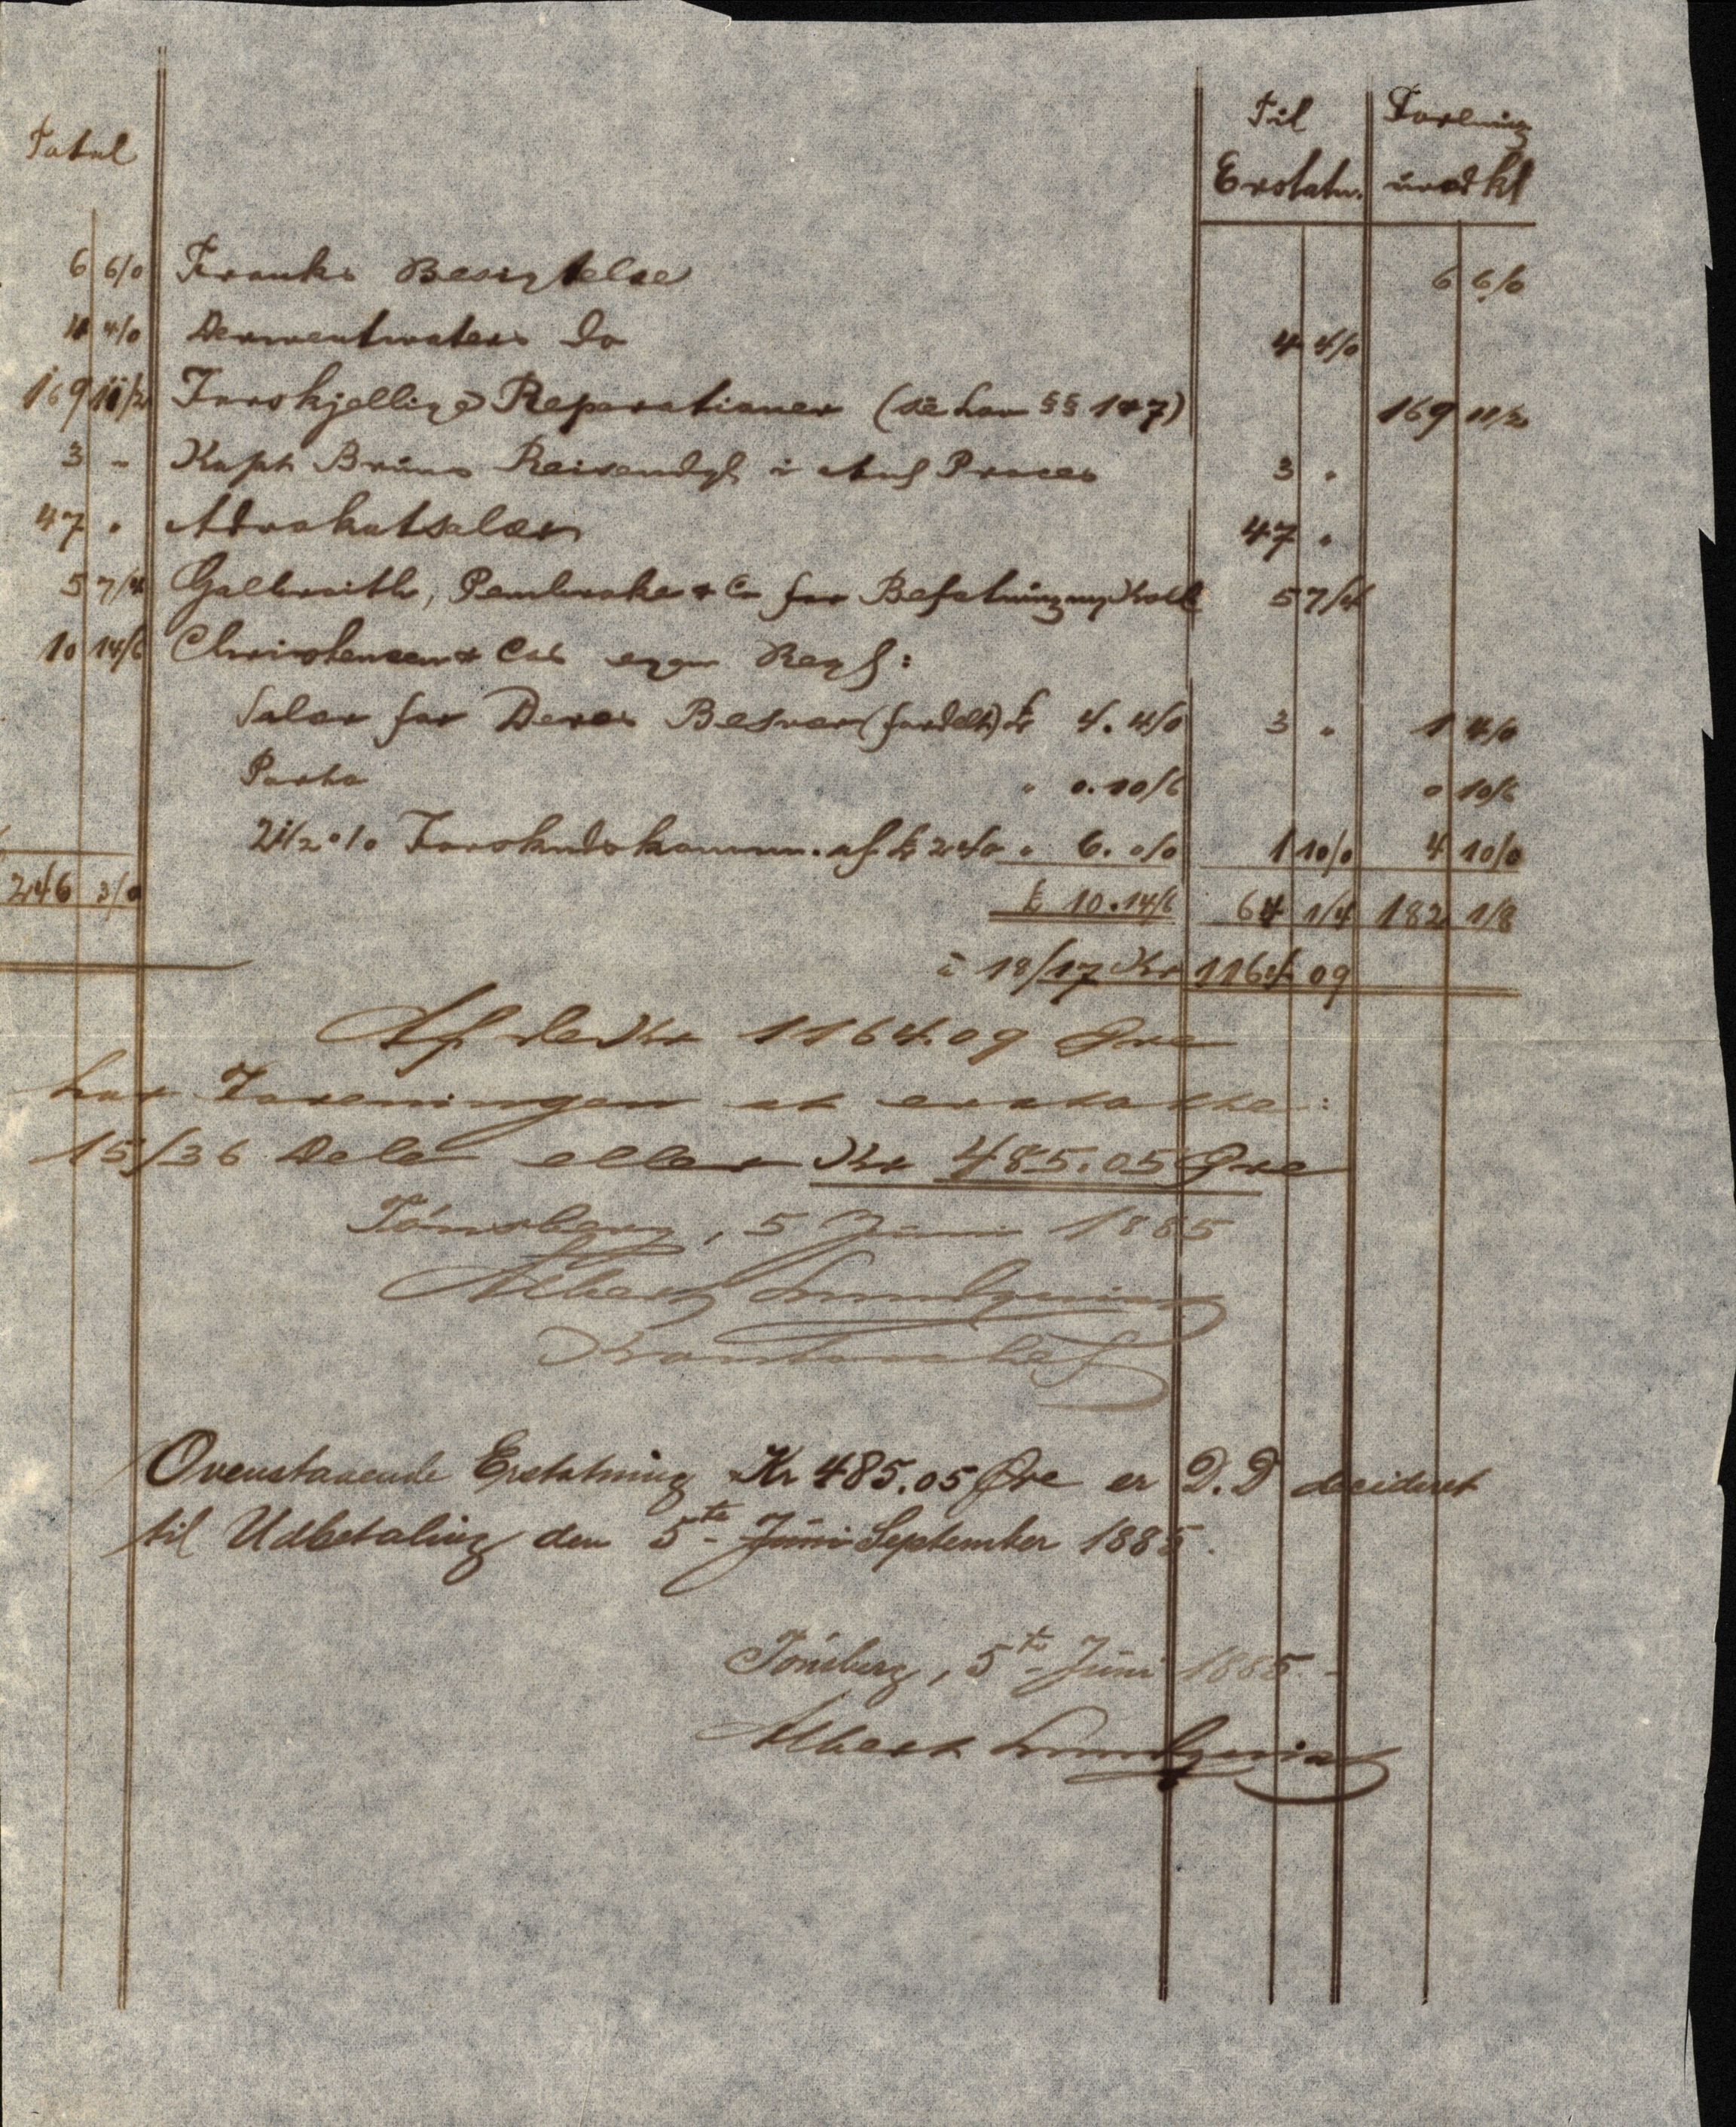 Total
Til
Erstatn.
Forening
uvedkl
6 6/0 Franks Besigtelse 6 6/0
4 4/0 Derwentwaters Do 4 4/0
169 11/2 Forskjellige Reparationer (se Lov §§ 1+7) 169 11/2
3 " Kapt Bruns Reise i Proces 3 "
47 " Advokatsalær 47 "
5 7/4 Galbraith, Pembroke & Co for Befatning 5 7/4
10 14/6 Christensen & Cos egen Regn:
Salær for Deres Besvær (fordelt) £ 4. 4/0 3 " 1 4/0
Porto " 0. 10/6 0 10/6
2 1/2 % Forskudskomm. af £ 240 " 6. 0/0 1 10/0 4 10/0
246 3/0 £ 10. 14/6 64 1/4 182 1/8
à 18/17 Kr 1164 09
Af de Kr 1164.09 Øre
har Foreningen at erstatte:
15/36 Dele eller Kr 485.05 Øre
Tönsberg, 5 Juni 1885
Albert Lundquist
Ovenstaaende Erstatning Kr 485.05 Øre er D.D decideret
til Udbetaling den 5te Juni September 1885.
Tönsberg, 5te Juni 1885.
Albert Lundquist